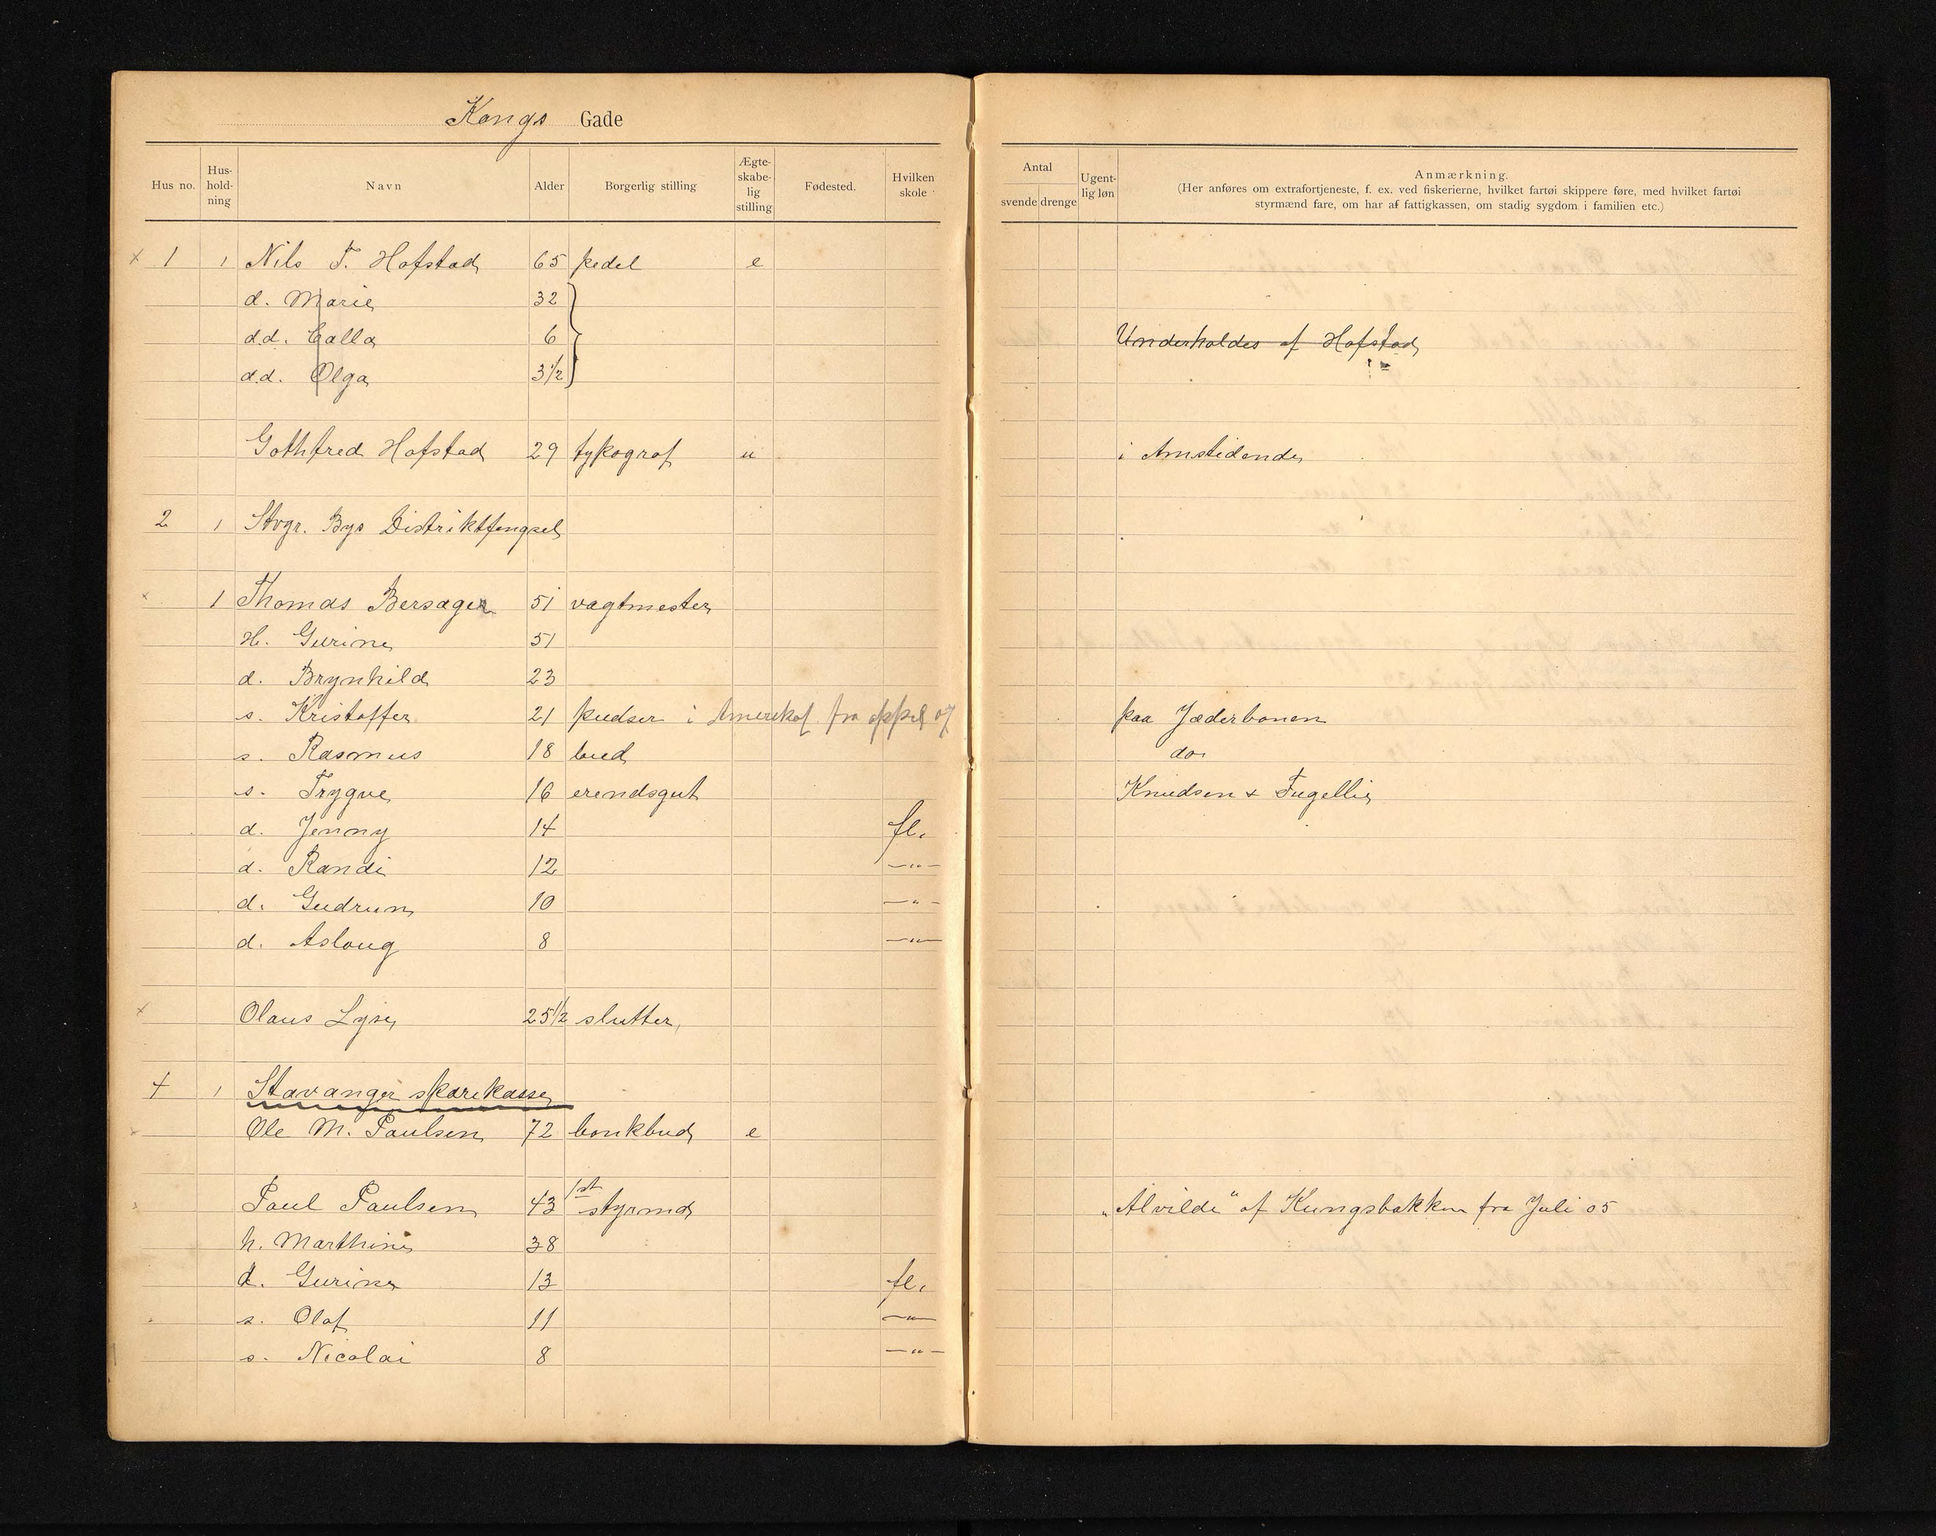 Kongs Gade
Hus no. Hus-hold-ning Navn Alder Borgerlig stilling Ægte-skabe-lig stilling Fødested. Hvilken skole Antal svende drenge Ugent-lig løn Anmærkning.
(Her anføres om extrafortjeneste, f. ex. ved fiskerierne, hvilket fartøi skippere føre, med hvilket fartøi
styrmænd fare, om har af fattigkassen, om stadig sygdom i familien etc.)
1 1 Nils T. Hofstad 65 pedel e
d. Marie 32
d.d. Calla 6 Underholdes af Hofstad
d.d. Olga 3 1/2
Gothfred Hofstad 29 typograf u i Amstidende
2 1 Stvgr. Bys Distriktfengsel
1 Thomas Bersager 51 vagtmester
H. Gurine 51
d. Brynhild 23
s. Kristoffer 21 pudser i Amerika fra april 07 paa Jæderbanen
s. Rasmus 18 bud do
s. Trygve 16 erendsgut Knudsen & Fugelli
d. Jenny 14 fl.
d. Randi 12 -"-
d. Gudrun 10 -"-
d. Aslaug 8 -"-
Olaus Lyse 25 1/2 slutter
4 1 Stavanger sparekasse
Ole M. Paulsen 72 bankbud e
Paul Paulsen 43 1st styrmd "Alvilde" af Kungsbakken fra Juli 05
h. Marthine 38
d. Gurine 13 fl.
s. Olaf 11 -"-
s. Nicolai 8 -"-